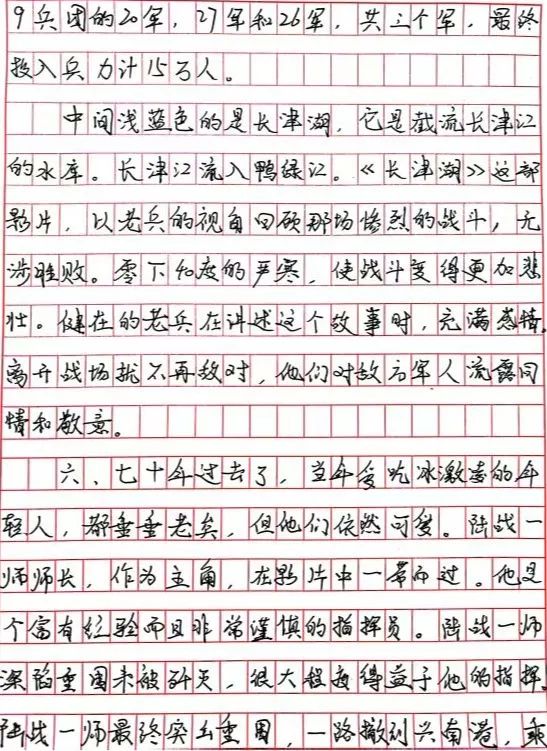 9兵团的20军，27军和26军，共三个军，最终
投入兵力计15万人。
中间浅蓝色的是长津湖，它是截流长津江
的水库。长津江流入鸭绿江。《长津湖》这部
影片，以老兵的视角回顾那场惨烈的战斗，无
涉胜败。零下40度的严寒，使战斗变得更加悲
壮。健在的老兵在讲述这个故事时，充满感情。
离开战场就不再敌对，他们对敌方军人流露同
情和敬意。
六、七十年过去了，当年爱吃冰激凌的年
轻人，都垂垂老矣，但他们依然可爱。陆战一
师师长，作为主角，在影片中一带而过。他是
个富有经验而且非常谨慎的指挥员。陆战一师
深陷重围未被歼灭，很大程度得益于他的指挥。
陆战一师最终突出重围，一路撤到兴南港，乘